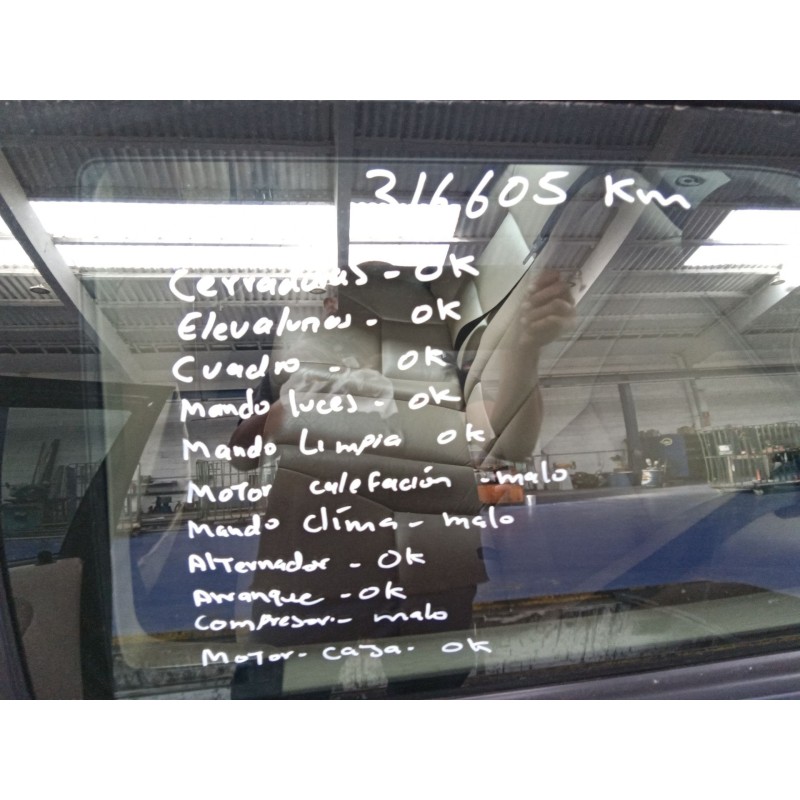 316605 Km
Cerraduras - OK
Elevalunas - OK
Cuadro - OK
Mando luces - OK
Mando Limpia OK
Motor calefación - malo
Mando clima - malo
Alternador - OK
Arranque - OK
Compresor - malo
Motor - caja - OK